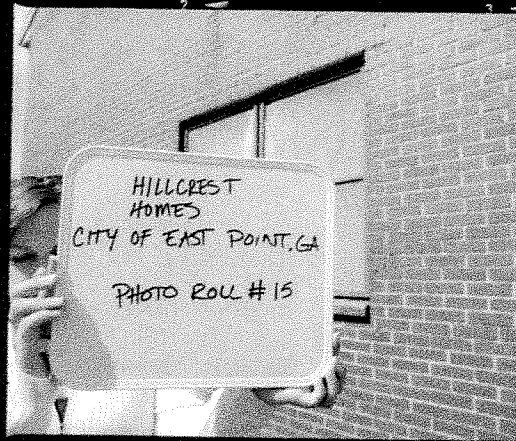 HILLCREST
HOMES
CITY OF EAST POINT, GA
PHOTO ROLL # 15